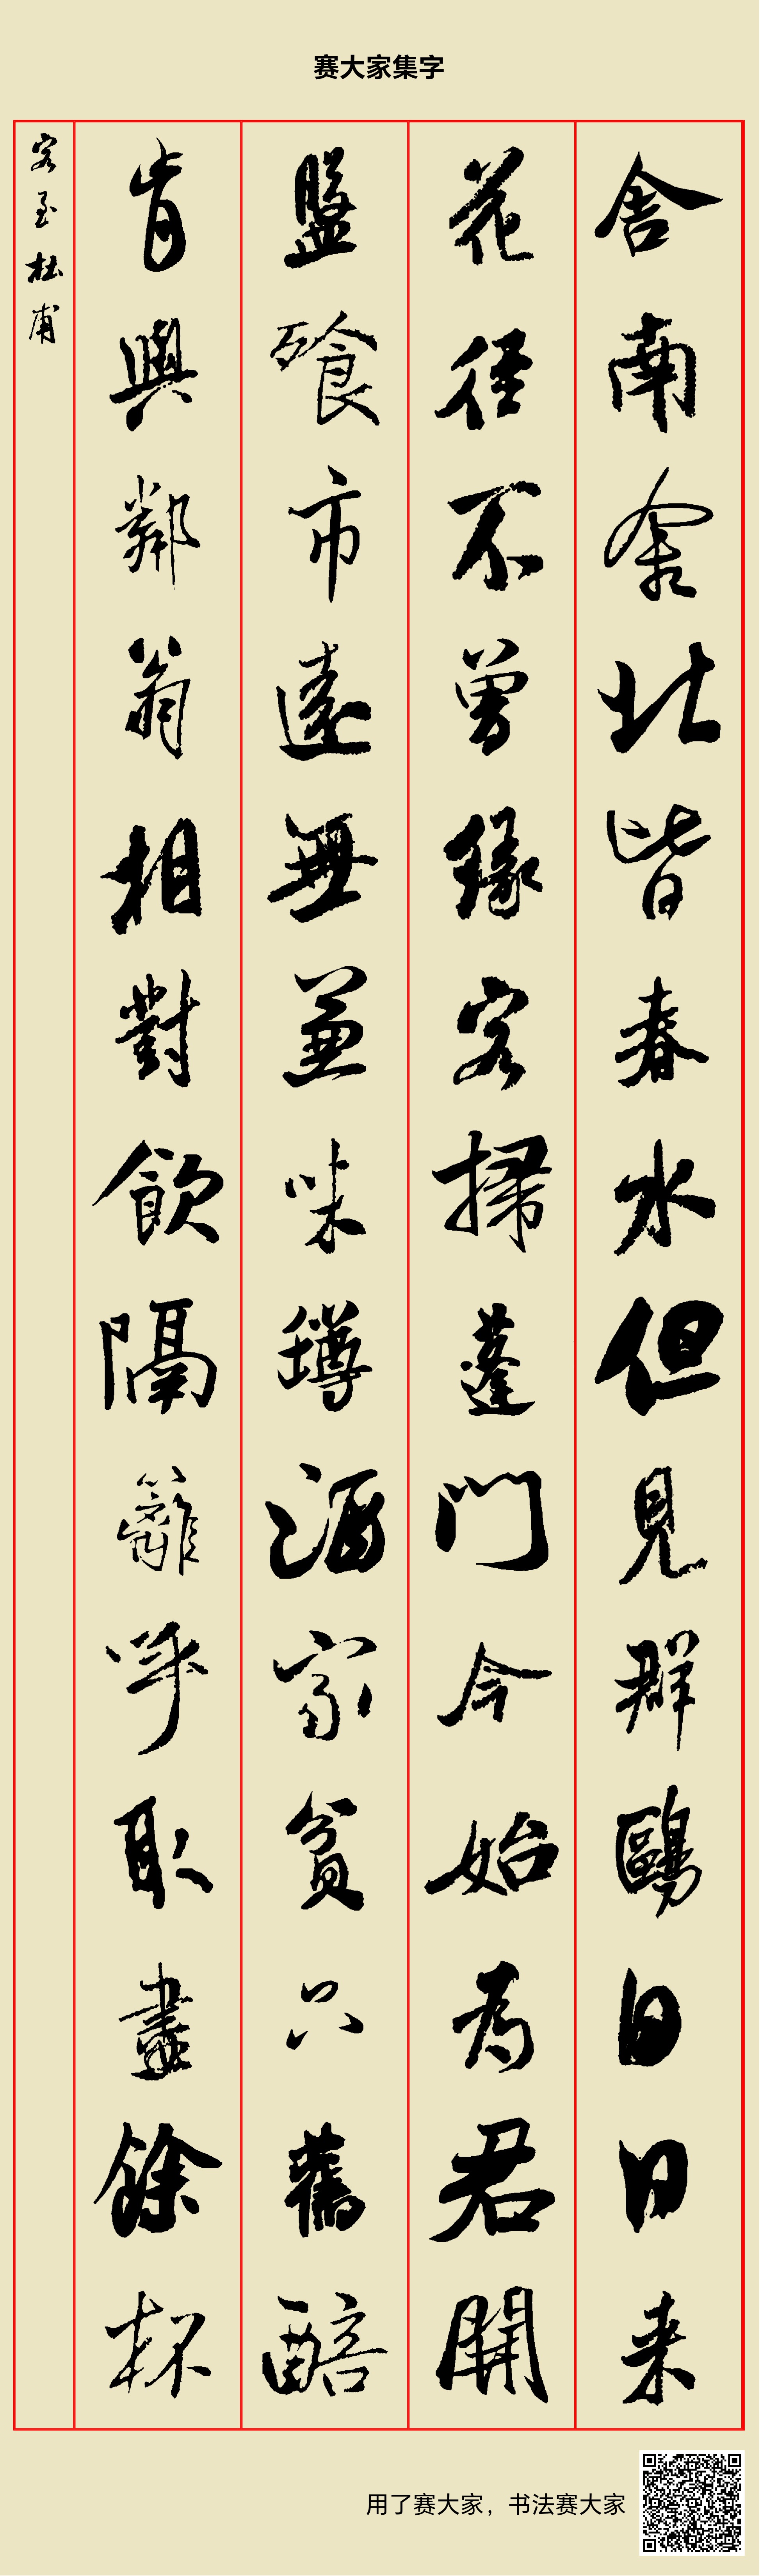 赛大家集字
舍南舍北皆春水但見群鷗日日来
花径不曾緣客掃蓬門今始為君開
盤飧市遠無兼味罇酒家貧只舊醅
肯與鄰翁相對飲隔籬呼取盡餘杯
客至杜甫
用了赛大家，书法赛大家